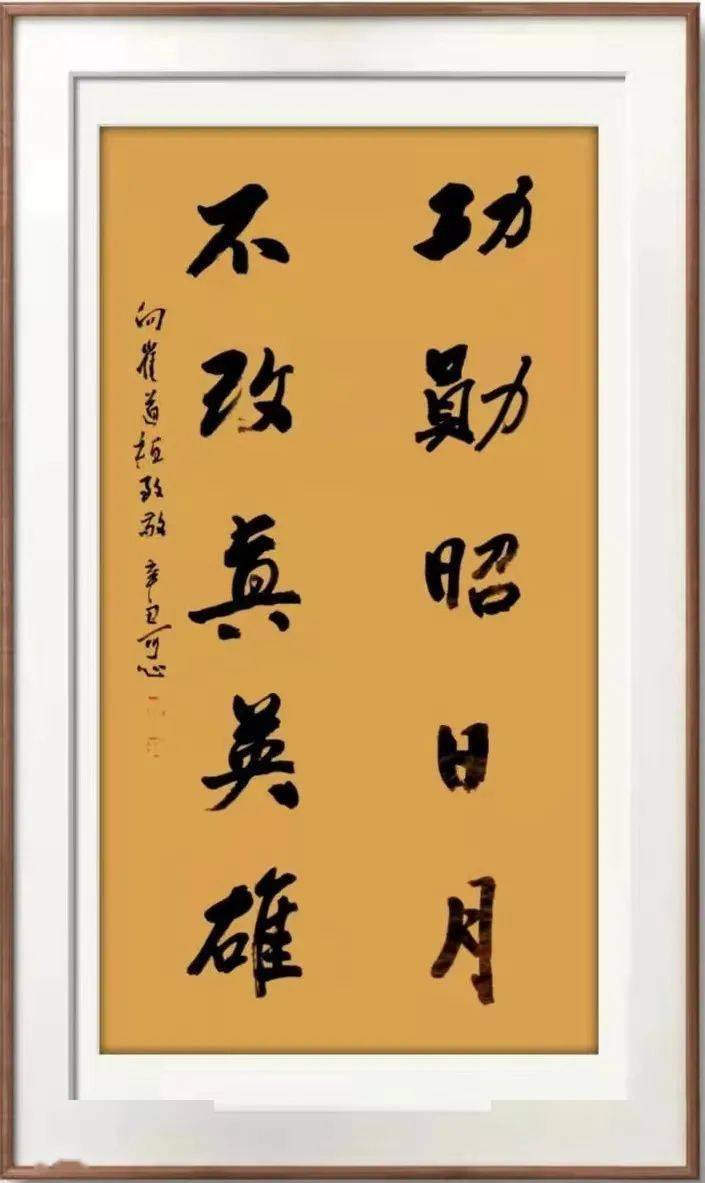 功勋昭日月
不改真英雄
向崔道植致敬 辛丑可心